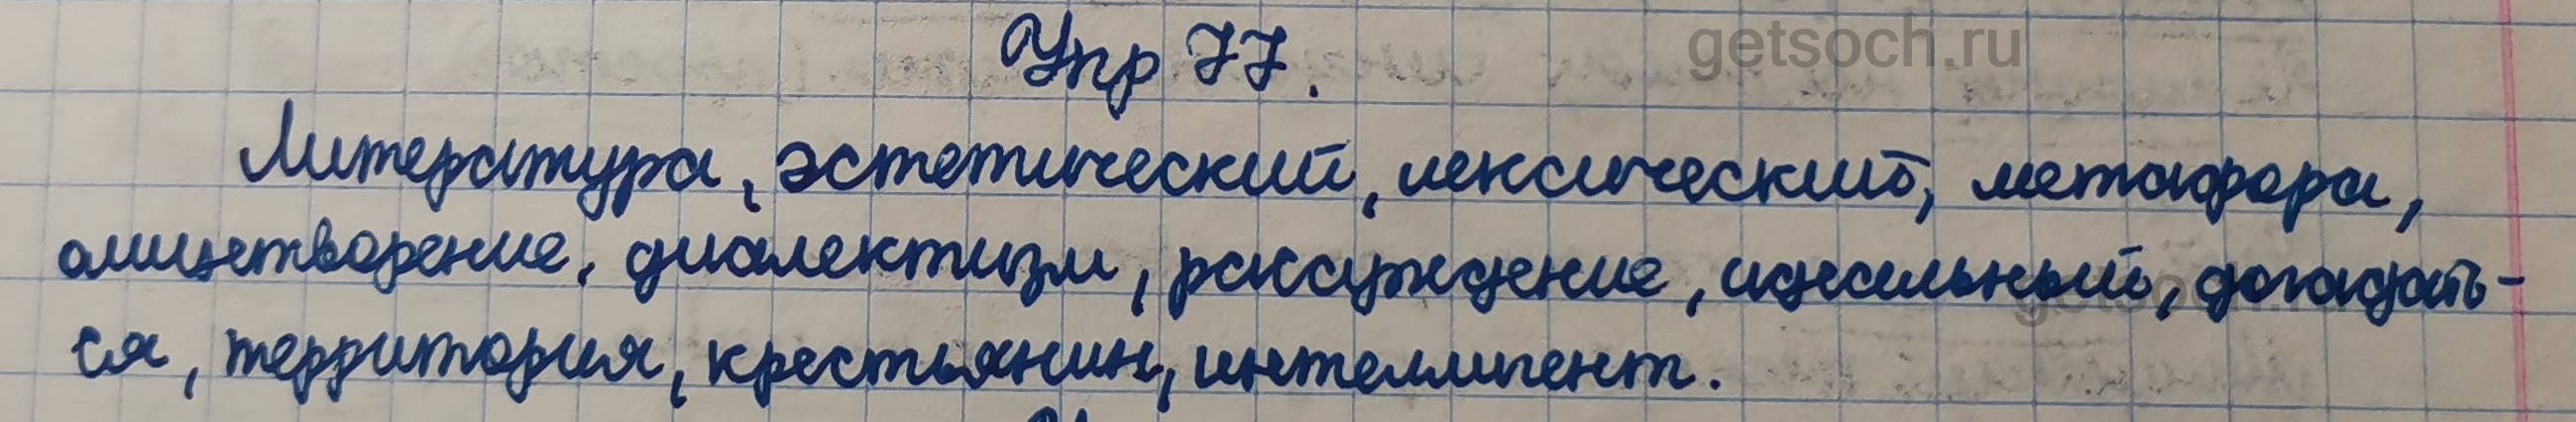 Упр 77.
getsoch.ru
Литература, эстетический, лексический, метафора,
олицетворение, диалектизм, рассуждение, идеальный, догадать-
ся, территория, крестьянин, интеллигент.
getsoch.ru